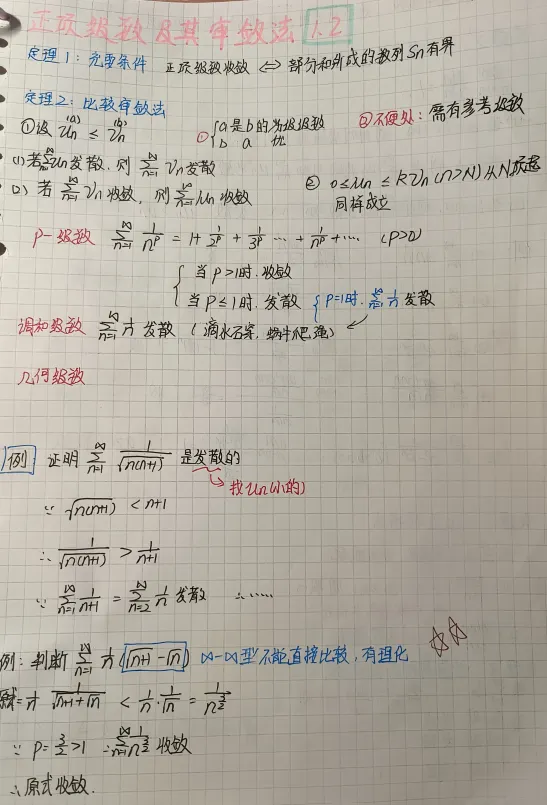 正项级数及其审敛法 1.2
定理1：充要条件 正项级数收敛 ⇔ 部分和所成的数列Sn有界
定理2：比较审敛法
①设 Un(a) ≤ Vn(b)
① { a是b的劣级数
b a 优
②不便处：需有参考级数
(1) 若∑_{n=1}^∞ Un发散，则 ∑_{n=1}^∞ Vn发散
(2) 若 ∑_{n=1}^∞ Vn收敛，则∑_{n=1}^∞ Un收敛
② 0≤Un ≤ kVn (n>N) 从N项起
同样成立
P-级数 ∑_{n=1}^∞ 1/n^p = 1+ 1/2^p + 1/3^p … + 1/n^p +… (P>0)
{ 当P>1时.收敛
当P≤1时.发散 { P=1时.∑_{n=1}^∞ 1/n 发散
调和级数 ∑_{n=1}^∞ 1/n 发散 (滴水石穿，蜗牛爬绳)
几何级数
例 证明 ∑_{n=1}^∞ 1/√(n(n+1)) 是发散的
→ 找Un(小的)
∵ √(n(n+1)) < n+1
∴ 1/√(n(n+1)) > 1/(n+1)
∵ ∑_{n=1}^∞ 1/(n+1) = ∑_{n=2}^∞ 1/n 发散 ∴……
例：判断 ∑_{n=1}^∞ 1/n (√(n+1) - √n) ∞-∞型不能直接比较，有理化 ☆☆
原式= 1/n · 1/(√(n+1)+√n) < 1/n · 1/√n = 1/n^(3/2)
∵ P=3/2>1 ∴ ∑_{n=1}^∞ 1/n^(3/2) 收敛
∴原式收敛.